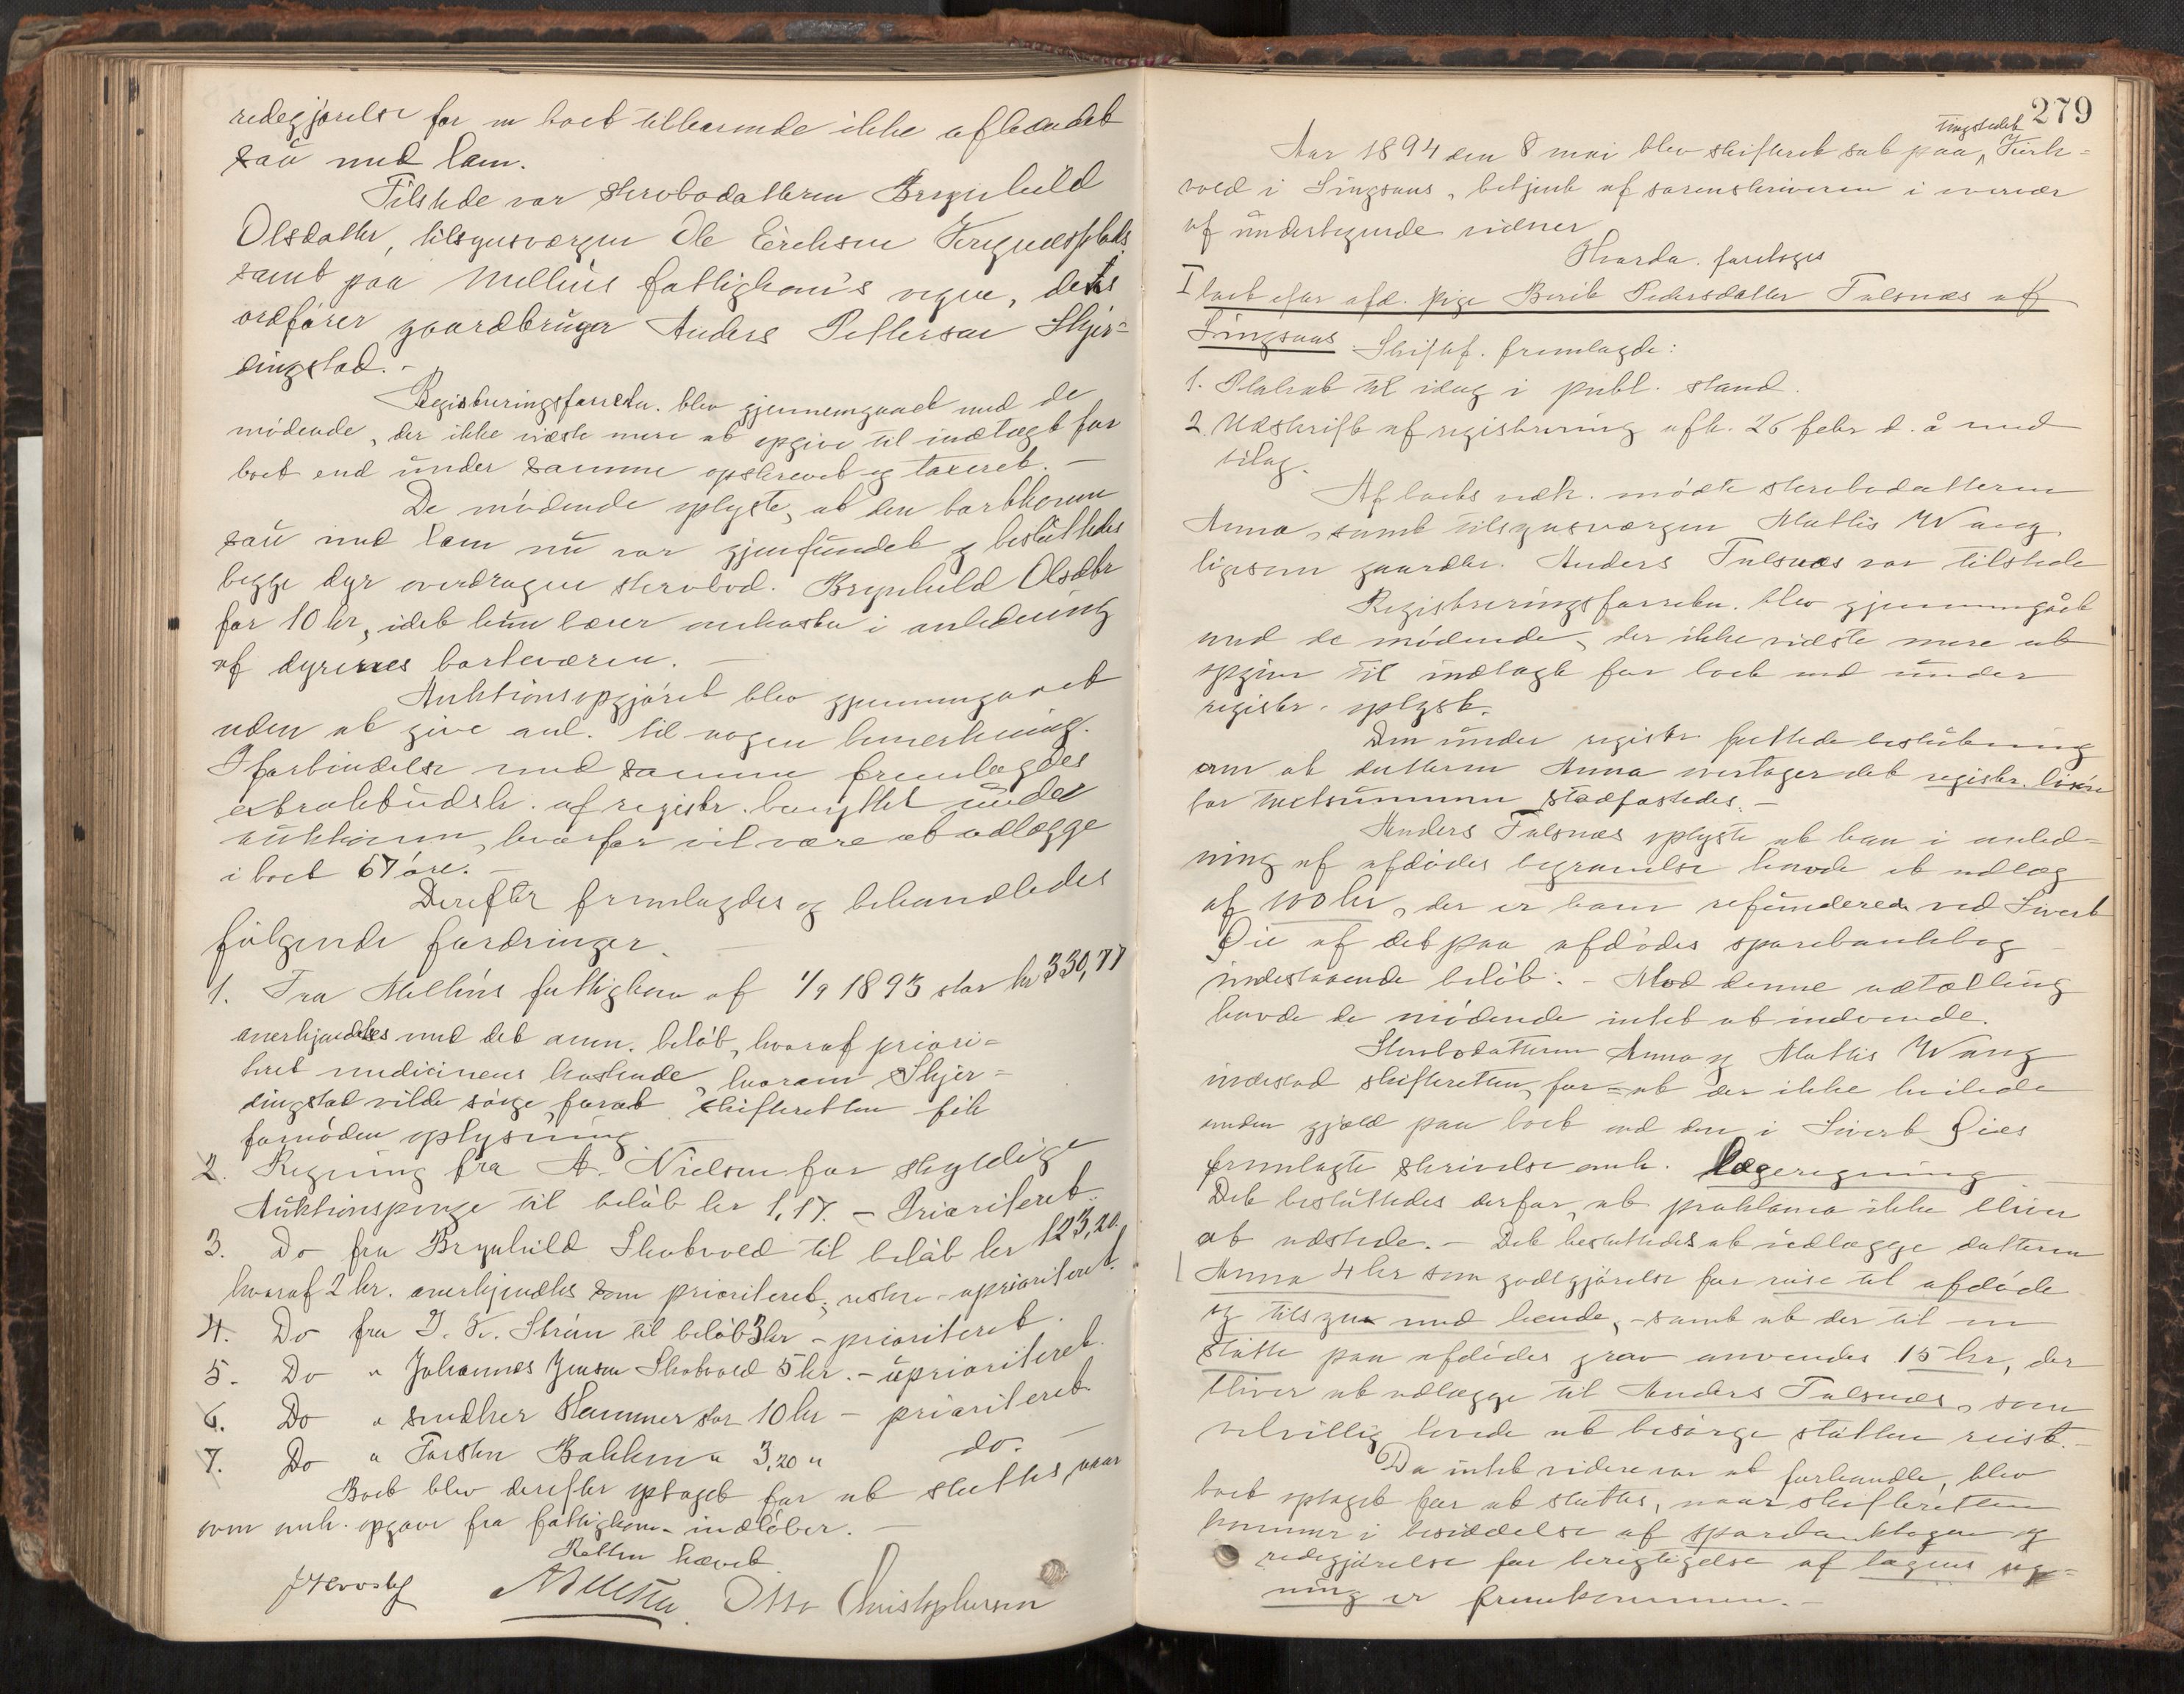 redegjørelse for en boet tilhørende ikke afhændet
sau med lam.
Tilstede var stervbodatteren Brynhild
Olsdatter, tilsynsværgen Ole Erichsen
samt paa Melhus fattigkom's vegne, dets
ordfører gaardbruger Anders Pettersen Skjer=
dingstad. -
Registreringsforretn. blev gjennemgaaet med de
mødende, der ikke vidste mere at opgive til indtægt for
boet end under samme opskrevet og taxeret. -
De mødende oplyste, at den bortkomne
sau med lam nu var gjenfundet og besluttedes
begge dyr overdragen stervbod. Brynhild Olsdtr
for 10 kr, idet hun bærer omkostn i anledning
af dyrenes borteværen. -
Auktionsopgjøret blev gjennemgaaet
uden at give anl. til nogen bemerkning.
I forbindelse med samme fremlagdes
extraktudskr. af registr. benyttet under
auktionen, hvorfor vil være at udlægge
i boet 67 øre. -
Derefter fremlagdes og behandledes
følgende fordringer. -
1. Fra Melhus fattigkom af 1/9 1893 stor kr 330,77
anerkjendtes med det anm. beløb, hvoraf priori=
teret medicinens kostende, hvorom Skjer=
dingstad vilde sørge, forat skifteretten fik
fornøden oplysning.
2. Regning fra A. Nielsen for skyldige
Auktionspenge til beløb kr 1,17. - Prioriteret.
3. Do fra Brynhild Skobvold til beløb kr 123,20.
hvoraf 2 kr. anerkjendtes som prioriteret, resten - uprioriteret.
4. Do fra til beløb 3 kr - prioriteret.
5. Do " Johannes Jensen Skobvold 5 kr. - uprioriteret.
6. Do " snedker Hammer stor 10 kr - prioriteret.
7. Do " Torsten Bakken " 3,20 " do. -
Boet blev derefter optaget for at sluttes, naar
ovm ank. opgave fra fattigkom. indløber. -
Retten hævet
A Nielsen. Otto Christophersen
279
Aar 1894 den 8 mai blev skifteret sat paa tingstedet
vold i Singsaas, betjent af sorenskriveren i overvær
af undertegnede vidner
Hvorda. foretoges
I boet efter afd. pige Berit Pedersdatter Talsnæs af
Singsaas. Skiftef. fremlagde:
1. Plakat til idag i publ. stand.
2. Udskrift af registrering afh. 26 febr d. å med
bilag.
Af boets vedk. mødte stervbodatteren
Anna, samt tilsynsværgen Mattis Wang
ligesom gaardbr. Anders Talsnæs var tilstede
Registreringsforretn. blev gjennemgået
med de mødende, der ikke vidste mere at
opgive til indtægt for boet end under
registr. oplyst.
Den under registr fattede beslutning
om at datteren Anna overtager det registr. løsøre
for taxtsummen stadfæstedes. -
Anders Talsnæs oplyste at han i anled=
ning af afdødes begravelse havde et udlæg
af 100 kr, der er ham refunderede ved Sivert
Øie af det paa afdødes sparebankbog
indestaaende beløb. - Mod denne udtælling
havde de mødende intet at indvende.
Stervbodatteren Anna og Mattis Wang
indestod skifteretten for = at der ikke heilede
anden gjæld paa boet end den i Sivert Øies
fremlagte skrivelse omh. lægeregning
Det besluttedes derfor, at proklama ikke bliver
at udstede. - Det besluttedes at udlægge datteren
Anna 4 kr som godtgjørelse for reise til afdøde
og tilsyn med hende, - samt at der til en
støtte paa afdødes grav anvendes 15 kr, der
bliver at udlægge til Anders Talsnæs, som
velvillig lovede at besørge støtten reist. -
Da intet videre var at forhandle, blev
boet optaget for at sluttes, naar skifteretten
kommer i besiddelse af sparebankbogen og
redegjørelse for berigtigelse af lægens reg=
ning er fremkommen. -